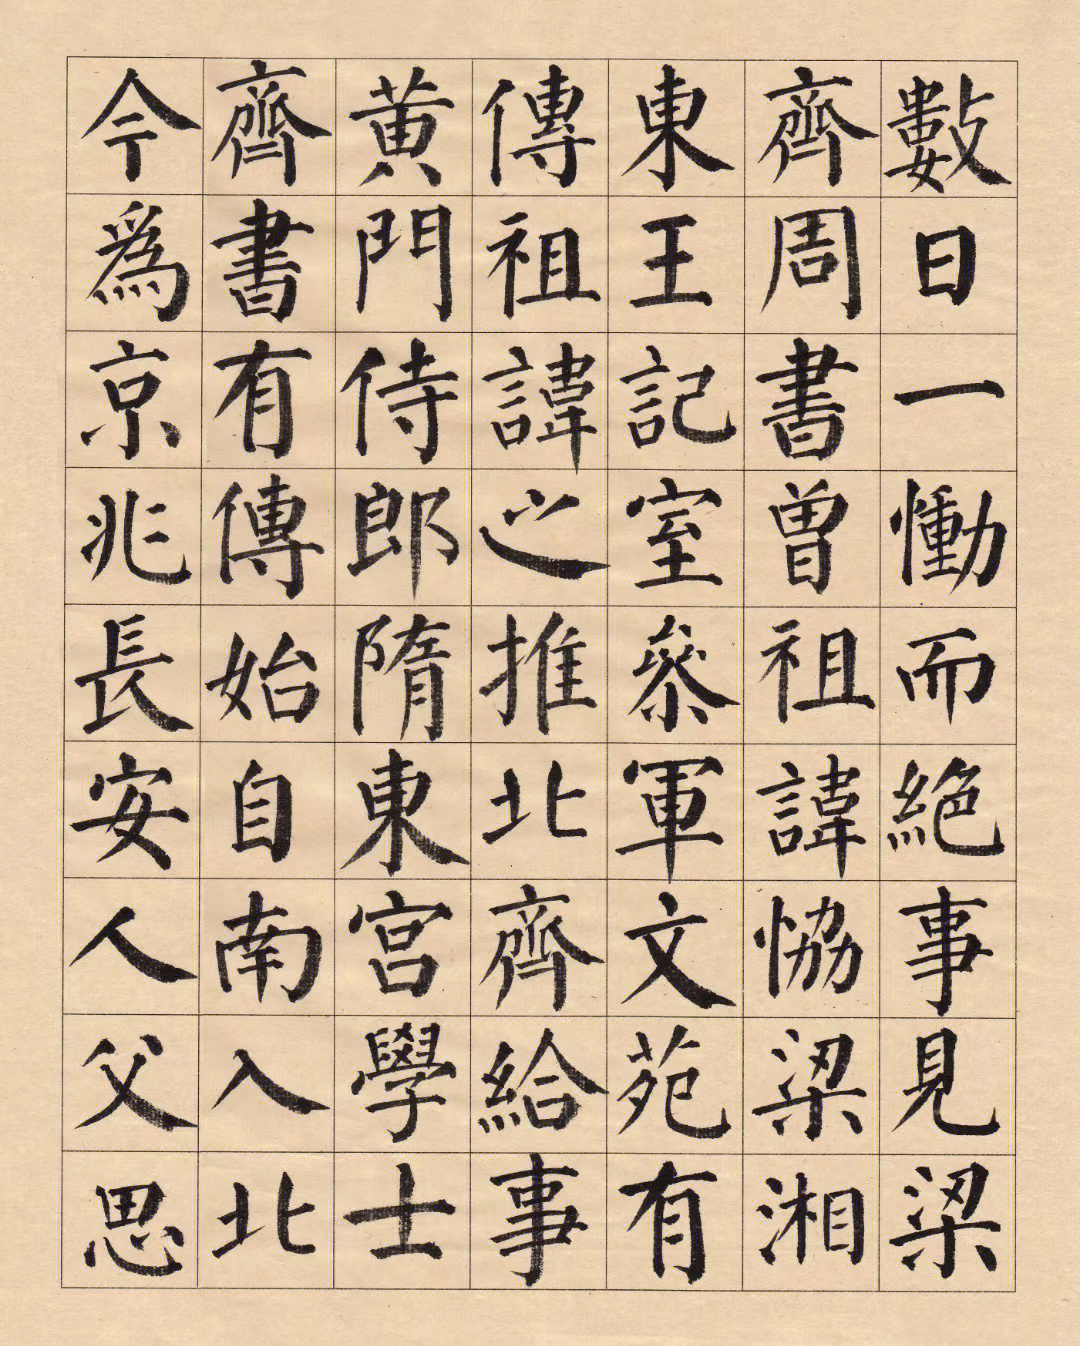 數日一慟而絶事見梁
齊周書曾祖諱恊梁湘
東王記室參軍文苑有
傳祖諱之推北齊給事
黄門侍郎隋東宫學士
齊書有傳始自南入北
今爲京兆長安人父思